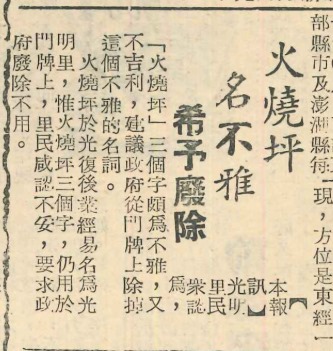 部縣市及澎湖縣每
現，方位是東經一
火燒坪
名不雅
希予廢除
【本報
訊】
光明
里民
眾認
為，
「火燒坪」三個字頗為不雅，又
不吉利，建議政府從門牌上除掉
這個不雅的名詞。
火燒坪於光復後業經易名為光
明里，惟火燒坪三個字，仍用於
門牌上，里民咸認不妥，要求政
府廢除不用。